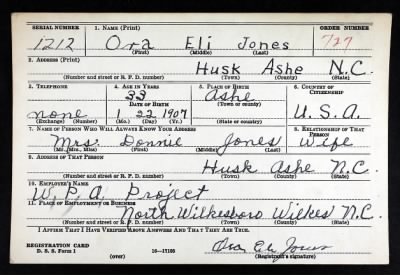 SERIAL NUMBER 1. NAME (Print) ORDER NUMBER
1212 Ora Eli Jones 727
(First) (Middle) (Last)
2. ADDRESS (Print)
Husk Ashe N.C.
(Number and street or R. F. D. number) (Town) (County) (State)
3. TELEPHONE 4. AGE IN YEARS 5. PLACE OF BIRTH 6. COUNTRY OF CITIZENSHIP
33 Ashe
DATE OF BIRTH (Town or county)
none 1 22 1907 U.S.A.
(Exchange) (Number) (Mo.) (Day) (Yr.) (State or country)
7. NAME OF PERSON WHO WILL ALWAYS KNOW YOUR ADDRESS 8. RELATIONSHIP OF THAT PERSON
Mrs. Donnie Jones Wife
(Mr., Mrs., Miss) (First) (Middle) (Last)
9. ADDRESS OF THAT PERSON
Husk Ashe N.C.
(Number and street or R. F. D. number) (Town) (County) (State)
10. EMPLOYER'S NAME
W.P.A. Project
11. PLACE OF EMPLOYMENT OR BUSINESS
North Wilkesboro Wilkes N.C.
(Number and street or R. F. D. number) (Town) (County) (State)
I AFFIRM THAT I HAVE VERIFIED ABOVE ANSWERS AND THAT THEY ARE TRUE.
REGISTRATION CARD
D. S. S. Form 1 16—17105 Ora Eli Jones
(over) (Registrant's signature)